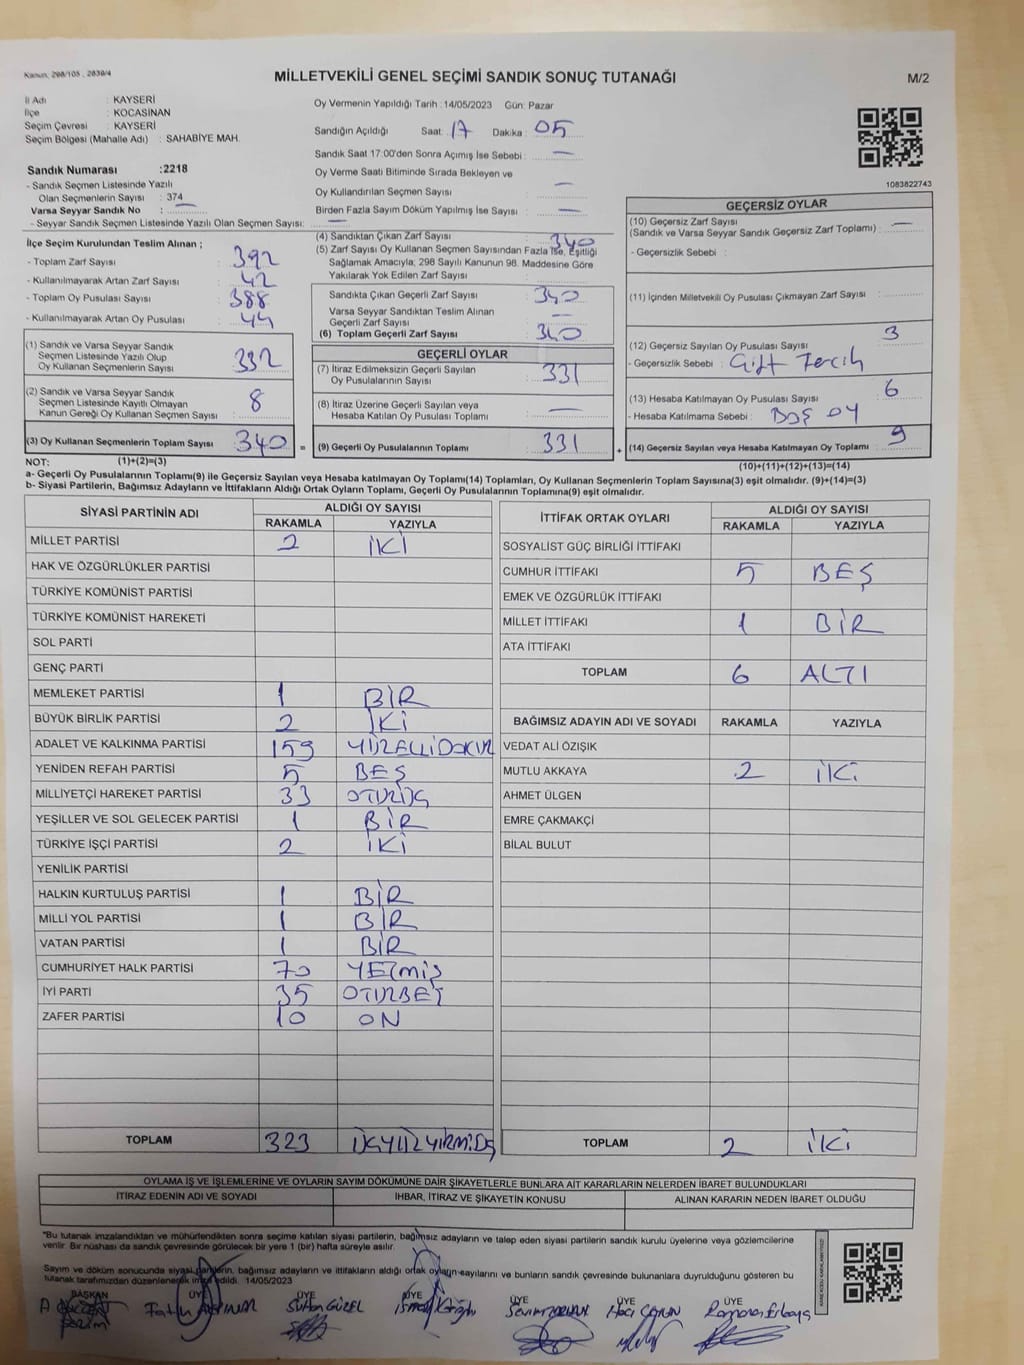 Kanun, 298/105 , 2839/4
MİLLETVEKİLİ GENEL SEÇİMİ SANDIK SONUÇ TUTANAĞI
M/2
İl Adı : KAYSERİ
İlçe : KOCASİNAN
Seçim Çevresi : KAYSERİ
Seçim Bölgesi (Mahalle Adı) : SAHABİYE MAH.
Oy Vermenin Yapıldığı Tarih : 14/05/2023 Gün: Pazar
Sandığın Açıldığı Saat : 17 Dakika : 05
Sandık Saat 17:00'den Sonra Açımış İse Sebebi : —
Oy Verme Saati Bitiminde Sırada Bekleyen ve
Oy Kullandırılan Seçmen Sayısı : —
Birden Fazla Sayım Döküm Yapılmış İse Sayısı : —
1083822743
Sandık Numarası :2218
- Sandık Seçmen Listesinde Yazılı
Olan Seçmenlerin Sayısı : 374
Varsa Seyyar Sandık No : —
- Seyyar Sandık Seçmen Listesinde Yazılı Olan Seçmen Sayısı: —
İlçe Seçim Kurulundan Teslim Alınan ;
- Toplam Zarf Sayısı : 392
- Kullanılmayarak Artan Zarf Sayısı : 42
- Toplam Oy Pusulası Sayısı : 388
- Kullanılmayarak Artan Oy Pusulası : 44
(1) Sandık ve Varsa Seyyar Sandık
Seçmen Listesinde Yazılı Olup
Oy Kullanan Seçmenlerin Sayısı : 332
(2) Sandık ve Varsa Seyyar Sandık
Seçmen Listesinde Kayıtlı Olmayan
Kanun Gereği Oy Kullanan Seçmen Sayısı : 8
(3) Oy Kullanan Seçmenlerin Toplam Sayısı 340 =
(1)+(2)=(3)
(4) Sandıktan Çıkan Zarf Sayısı : 340
(5) Zarf Sayısı Oy Kullanan Seçmen Sayısından Fazla İse, Eşitliği
Sağlamak Amacıyla; 298 Sayılı Kanunun 98. Maddesine Göre
Yakılarak Yok Edilen Zarf Sayısı :
Sandıkta Çıkan Geçerli Zarf Sayısı : 340
Varsa Seyyar Sandıktan Teslim Alınan
Geçerli Zarf Sayısı : —
(6) Toplam Geçerli Zarf Sayısı : 340
GEÇERLİ OYLAR
(7) İtiraz Edilmeksizin Geçerli Sayılan
Oy Pusulalarının Sayısı : 331
(8) İtiraz Üzerine Geçerli Sayılan veya
Hesaba Katılan Oy Pusulası Toplamı : —
(9) Geçerli Oy Pusulalarının Toplamı : 331 +
GEÇERSİZ OYLAR
(10) Geçersiz Zarf Sayısı : —
(Sandık ve Varsa Seyyar Sandık Geçersiz Zarf Toplamı)
- Geçersizlik Sebebi :
(11) İçinden Milletvekili Oy Pusulası Çıkmayan Zarf Sayısı :
(12) Geçersiz Sayılan Oy Pusulası Sayısı : 3
- Geçersizlik Sebebi : Çift Tercih
(13) Hesaba Katılmayan Oy Pusulası Sayısı : 6
- Hesaba Katılmama Sebebi : BOŞ OY
(14) Geçersiz Sayılan veya Hesaba Katılmayan Oy Toplamı : 9
(10)+(11)+(12)+(13)=(14)
NOT:
a- Geçerli Oy Pusulalarının Toplamı(9) ile Geçersiz Sayılan veya Hesaba katılmayan Oy Toplamı(14) Toplamları, Oy Kullanan Seçmenlerin Toplam Sayısına(3) eşit olmalıdır. (9)+(14)=(3)
b- Siyasi Partilerin, Bağımsız Adayların ve İttifakların Aldığı Ortak Oyların Toplamı, Geçerli Oy Pusulalarının Toplamına(9) eşit olmalıdır.
SİYASİ PARTİNİN ADI
ALDIĞI OY SAYISI
RAKAMLA YAZIYLA
MİLLET PARTİSİ 2 İKİ
HAK VE ÖZGÜRLÜKLER PARTİSİ
TÜRKİYE KOMÜNİST PARTİSİ
TÜRKİYE KOMÜNİST HAREKETİ
SOL PARTİ
GENÇ PARTİ
MEMLEKET PARTİSİ 1 BİR
BÜYÜK BİRLİK PARTİSİ 2 İKİ
ADALET VE KALKINMA PARTİSİ 159 YÜZELLİDOKUZ
YENİDEN REFAH PARTİSİ 5 BEŞ
MİLLİYETÇİ HAREKET PARTİSİ 33 OTUZÜÇ
YEŞİLLER VE SOL GELECEK PARTİSİ 1 BİR
TÜRKİYE İŞÇİ PARTİSİ 2 İKİ
YENİLİK PARTİSİ
HALKIN KURTULUŞ PARTİSİ 1 BİR
MİLLİ YOL PARTİSİ 1 BİR
VATAN PARTİSİ 1 BİR
CUMHURİYET HALK PARTİSİ 70 YETMİŞ
İYİ PARTİ 35 OTUZBEŞ
ZAFER PARTİSİ 10 ON
TOPLAM 323
İTTİFAK ORTAK OYLARI
ALDIĞI OY SAYISI
RAKAMLA YAZIYLA
SOSYALİST GÜÇ BİRLİĞİ İTTİFAKI
CUMHUR İTTİFAKI 5 BEŞ
EMEK VE ÖZGÜRLÜK İTTİFAKI
MİLLET İTTİFAKI 1 BİR
ATA İTTİFAKI
TOPLAM 6 ALTI
BAĞIMSIZ ADAYIN ADI VE SOYADI RAKAMLA YAZIYLA
VEDAT ALİ ÖZIŞIK
MUTLU AKKAYA 2 İKİ
AHMET ÜLGEN
EMRE ÇAKMAKÇİ
BİLAL BULUT
TOPLAM 2 İKİ
OYLAMA İŞ VE İŞLEMLERİNE VE OYLARIN SAYIM DÖKÜMÜNE DAİR ŞİKAYETLERLE BUNLARA AİT KARARLARIN NELERDEN İBARET BULUNDUKLARI
İTİRAZ EDENİN ADI VE SOYADI
İHBAR, İTİRAZ VE ŞİKAYETİN KONUSU
ALINAN KARARIN NEDEN İBARET OLDUĞU
"Bu tutanak imzalandıktan ve mühürlendikten sonra seçime katılan siyasi partilerin, bağımsız adayların ve talep eden siyasi partilerin sandık kurulu üyelerine veya gözlemcilerine
verilir. Bir nüshası da sandık çevresinde görülecek bir yere 1 (bir) hafta süreyle asılır.
Sayım ve döküm sonucunda siyasi partilerin, bağımsız adayların ve ittifakların aldığı ortak oyların sayılarını ve bunların sandık çevresinde bulunanlara duyrulduğunu gösteren bu
tutanak tarafımızdan düzenlenerek imza edildi. 14/05/2023
BAŞKAN ÜYE ÜYE ÜYE ÜYE ÜYE ÜYE
Sultan GÜZEL